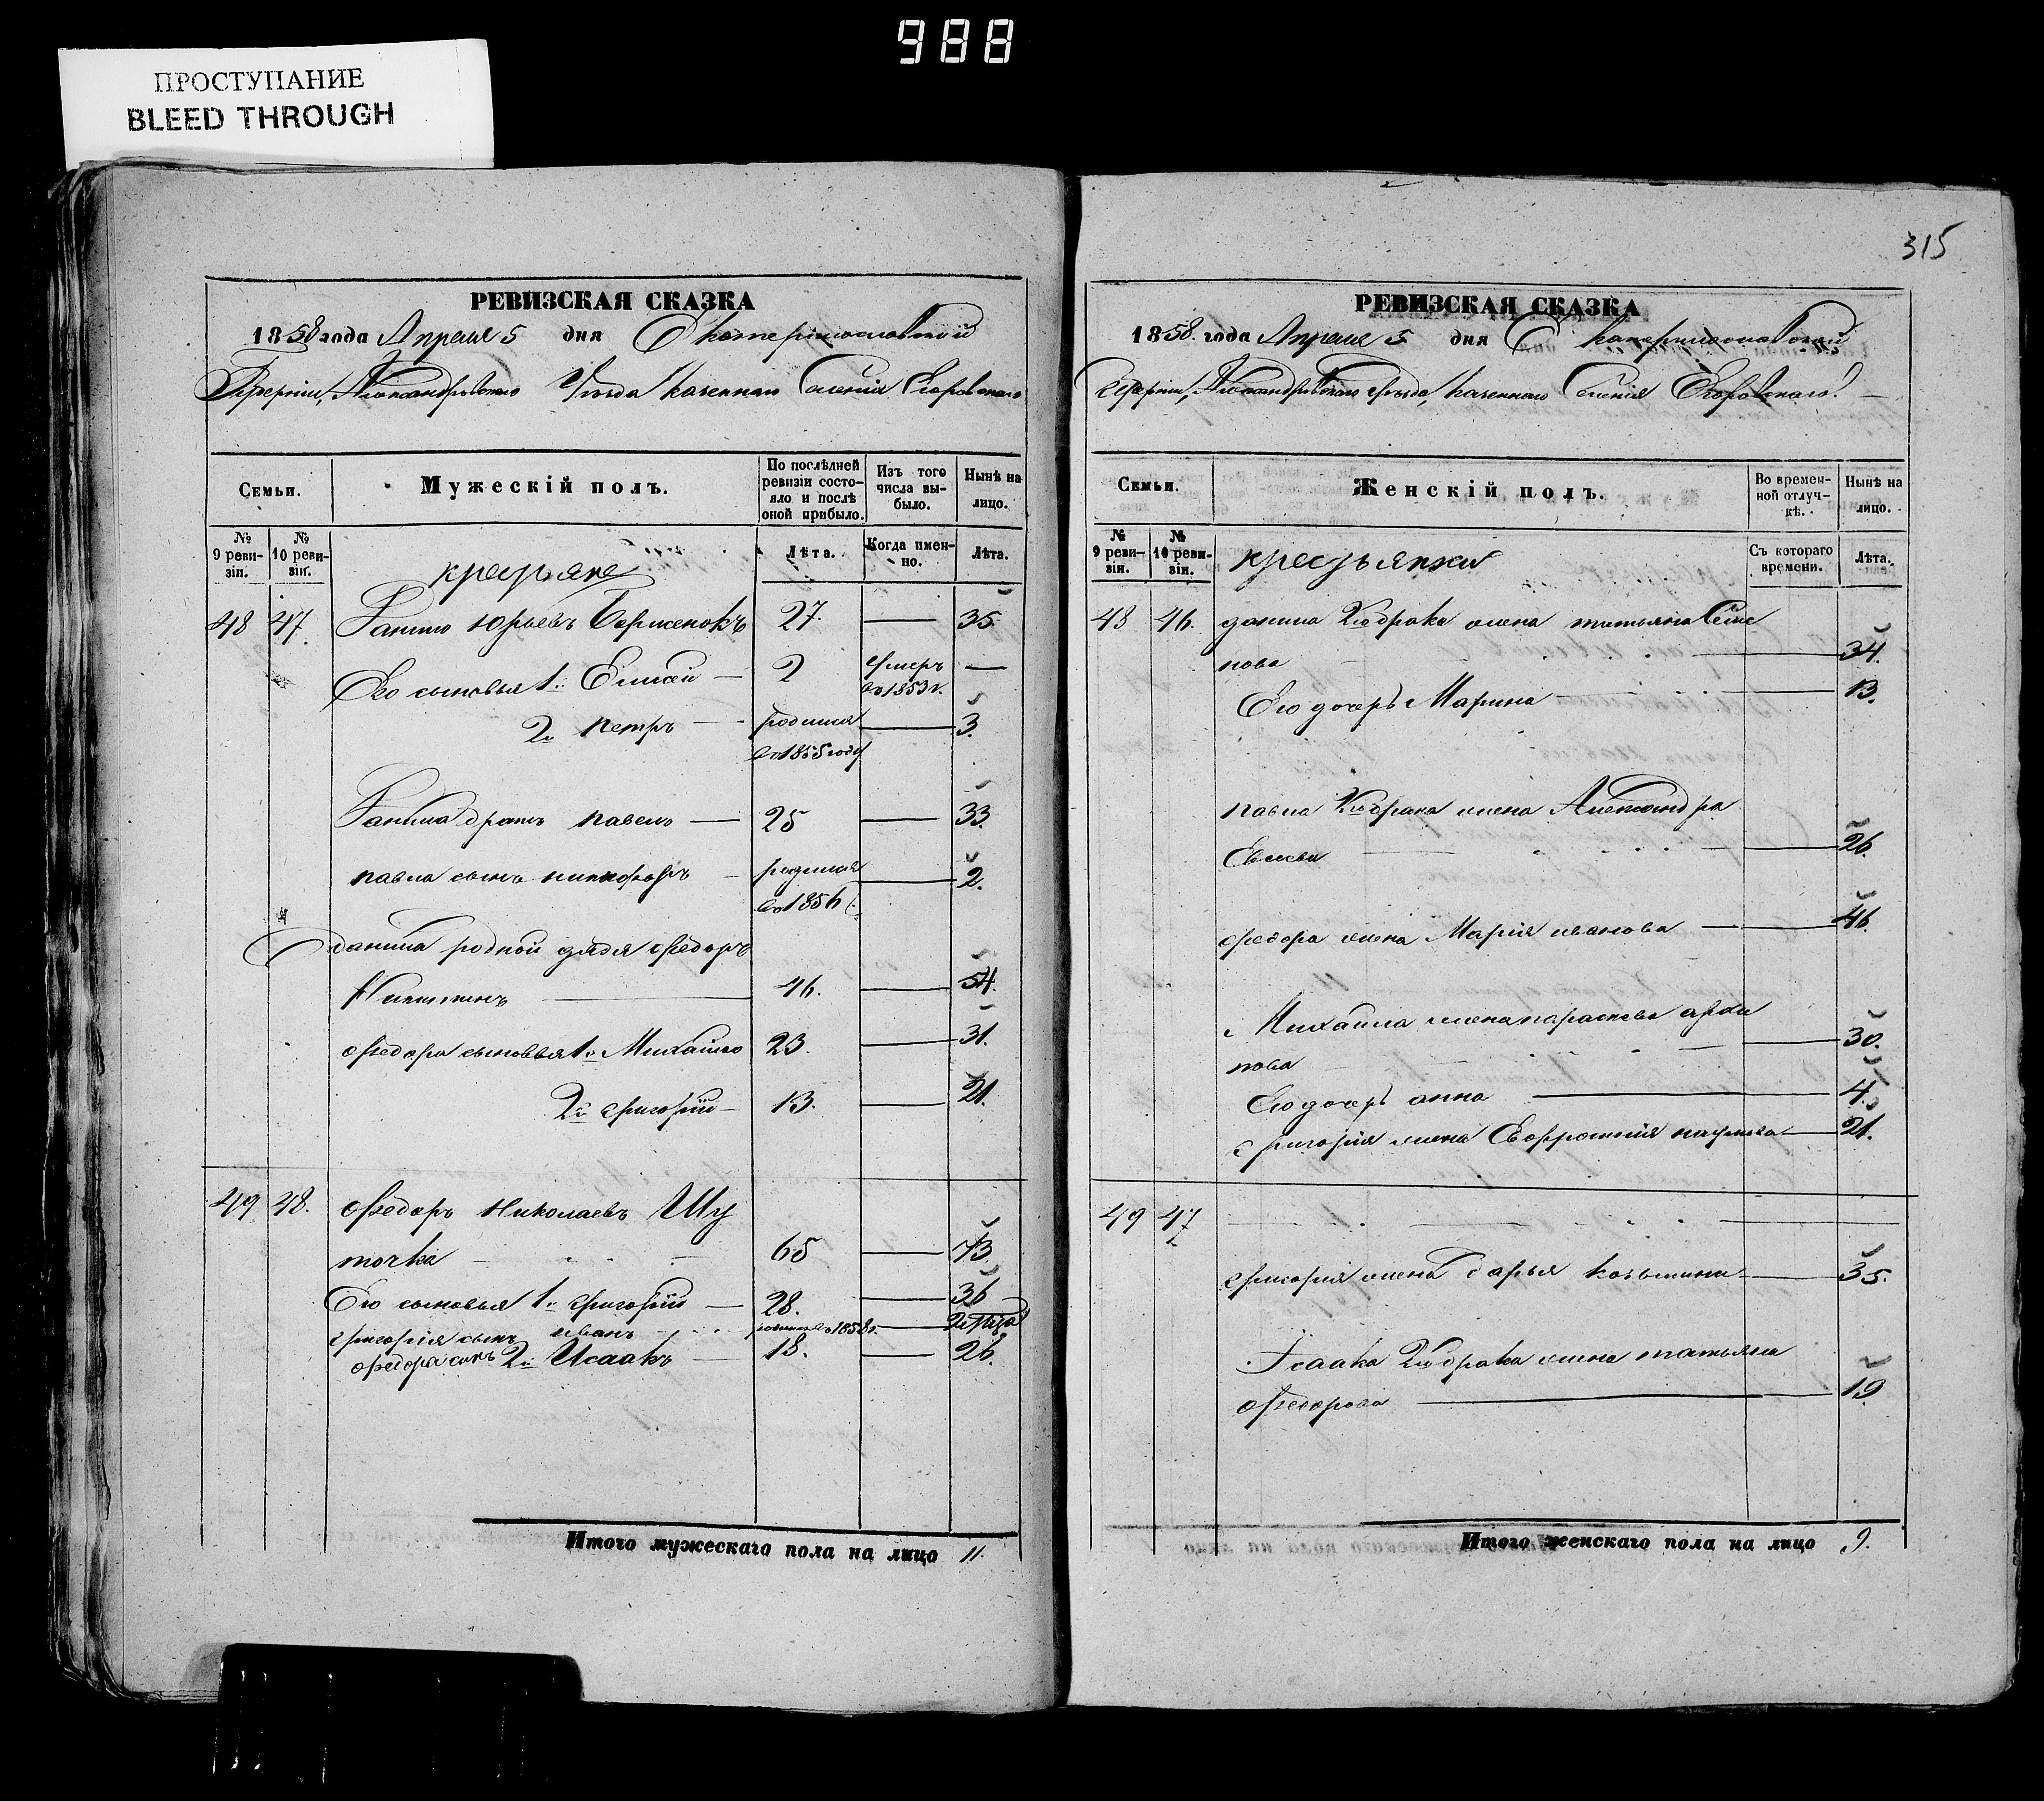 988
ПРОСТУПАНИЕ
BLEED THROUGH
РЕВИЗСКАЯ СКАЗКА
1858 года Апреля 5 дня Екатеринославской
Губерніи, Александровскаго Уѣзда казеннаго Селенія Егоровскаго
Семьи.
Мужескій полъ.
По послѣдней ревизіи состояло и послѣ оной прибыло.
Изъ того числа выбыло.
Нынѣ на лицо.
№ 9 ревизіи.
№ 10 ревизіи.
Лѣта.
Когда именно.
Лѣта.
крестьяне
48 47. Данило Юрьевъ 27. — 35.
Его сыновья 1й Елисей — 2 умеръ въ 1853 г. —
2й Петръ — родился въ 1855 году — 3.
Данила братъ павелъ — 25 — 33.
павла сынъ никифоръ — родился въ 1856 г. — 2.
данила родной дядя федоръ
Никитинъ — 46. — 54.
федора сыновья 1й Михайло 23. — 31.
2й григорій — 13. — 21.
49 48. Федоръ Николаевъ Шу
точка — 65 — 73.
Его сыновья 1й григорій — 28. — 36
григорія сынъ иванъ родился въ 1858 г. —
федора сынъ 2й Исаакъ — 18. — 26.
Итого мужескаго пола на лицо 11.
315
РЕВИЗСКАЯ СКАЗКА
1858. года Апреля 5 дня Екатеринославской
Губерніи, Александровскаго уѣзда, казеннаго Селенія Егоровскаго. —
Семьи.
Женскій полъ.
Во временной отлучкѣ.
Нынѣ на лицо.
№ 9 ревизіи.
№ 10 ревизіи.
Съ котораго времени.
Лѣта.
крестьянки
48 46. данила 2го брака жена татьяна Семе
нова — 34.
Его дочерь Марина — 13.
павла 2го брака жена Александра
— 26.
федора жена Марія иванова — 46.
Михайла жена параскева архи
пова — 30.
Его дочерь анна — 4.
григорія жена Ефросинія — 21.
49 47 —
григорія жена дарья козьмина — 35.
Исаака 2го брака жена татьяна
Федорова — 19
Итого женскаго пола на лицо 9.